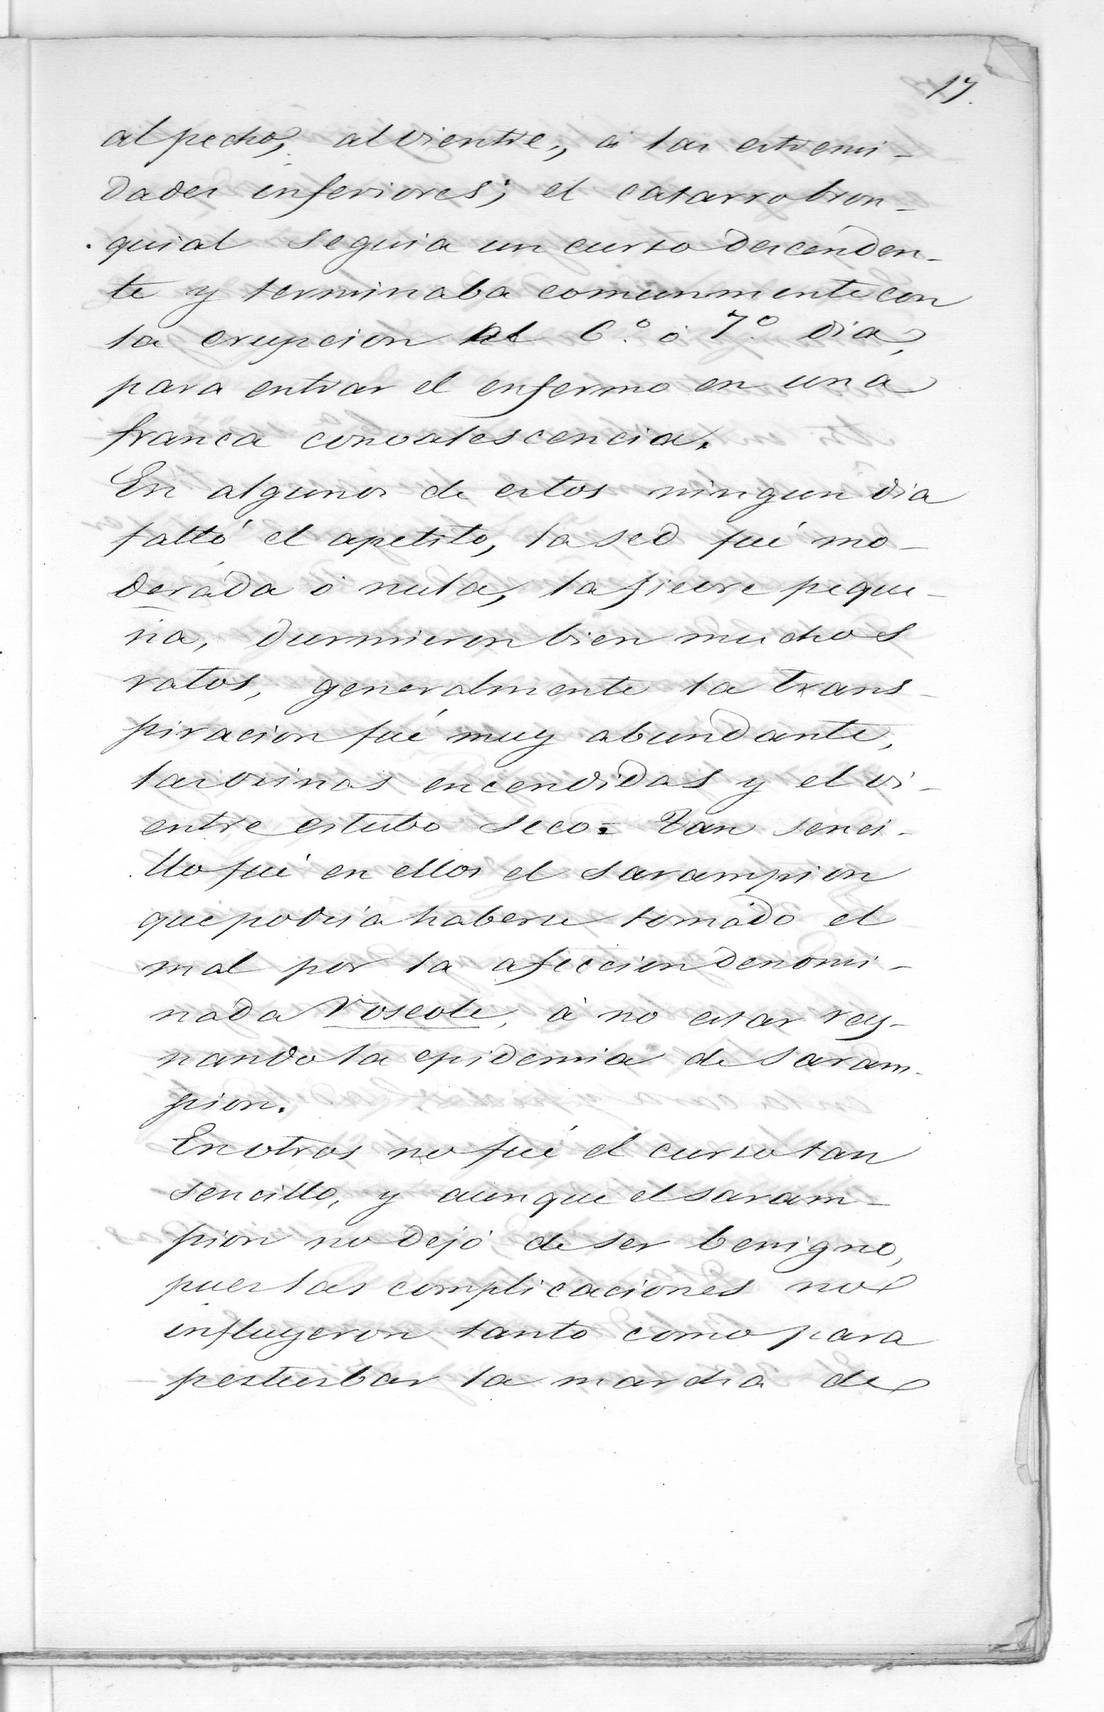 17.
al pecho, al vientre, á las estremi-
dades inferiores; el catarro bron-
quial seguia un curso descenden-
te y terminaba comunmente con
la erupcion al 6.º ó 7.º dia,
para entrar el enfermo en una
franca convalescencia.
En algunos de estos ningun dia
faltó el apetito, la sed fué mo-
derada ó nula, la fiebre peque-
ña, durmieron bien muchos
ratos, generalmente la trans-
piracion fué muy abundante,
las orinas encendidas y el vi-
entre estubo seco. Tan senci-
llo fué en ellos el sarampion
que podria haberse tomado el
mal por la afeccion denomi-
nada Roseole, á no estar rey-
nando la epidemia de saram-
pion.
En otros no fué el curso tan
sencillo, y aunque el saram-
pion no dejó de ser benigno,
pues las complicaciones no
influyeron tanto como para
perturbar la marcha de